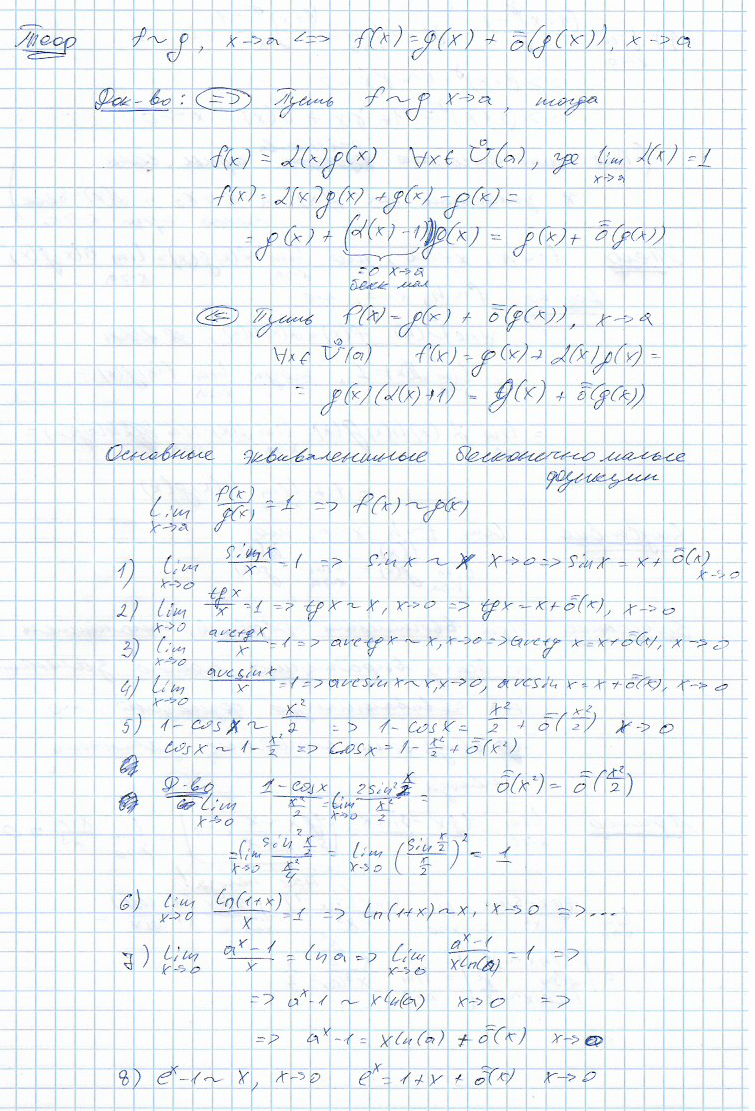 Теор f ~ g, x→a <=> f(x) = g(x) + ō̄(g(x)), x→a
Док-во: => Пусть f ~ g x→a, тогда
f(x) = α(x)g(x) ∀x∈ Ů(a), где lim α(x) = 1
x→a
f(x) = α(x)g(x) + g(x) - g(x) =
= g(x) + (α(x) - 1)g(x) = g(x) + ō̄(g(x))
=0 x→a
беск мал
<= Пусть f(x) = g(x) + ō̄(g(x)), x→a
∀x∈ Ů(a) f(x) = g(x) + α(x)g(x) =
= g(x)(α(x)+1) = g(x) + ō̄(g(x))
Основные эквивалентные бесконечно малые
функции
lim f(x)/g(x) = 1 => f(x) ~ g(x)
x→a
1) lim sinx/x = 1 => sinx ~ x x→0 => sinx = x + ō̄(x)
x→0 x→0
2) lim tgx/x = 1 => tgx ~ x, x→0 => tgx = x + ō̄(x), x→0
x→0
3) lim arctgx/x = 1 => arctgx ~ x, x→0 => arctg x = x + ō̄(x), x→0
x→0
4) lim arcsinx/x = 1 => arcsinx ~ x, x→0, arcsin x = x + ō̄(x), x→0
x→0
5) 1-cosx ~ x²/2 => 1-cosx = x²/2 + ō̄(x²/2) x→0
cosx ~ 1 - x²/2 => cosx = 1 - x²/2 + ō̄(x²)
Д-во lim (1-cosx)/(x²/2) = lim (2sin² x/2)/(x²/2) = ō̄(x²) = ō̄(x²/2)
x→0 x→0
= lim (sin² x/2)/(x²/4) = lim ((sin x/2)/(x/2))² = 1
x→0 x→0
6) lim ln(1+x)/x = 1 => ln(1+x) ~ x, x→0 => ...
x→0
7) lim (aˣ-1)/x = ln a => lim (aˣ-1)/(x ln(a)) = 1 =>
x→0 x→0
=> aˣ-1 ~ x ln(a) x→0 =>
=> aˣ-1 = x ln(a) + ō̄(x) x→0
8) eˣ-1 ~ x, x→0 eˣ = 1 + x + ō̄(x) x→0